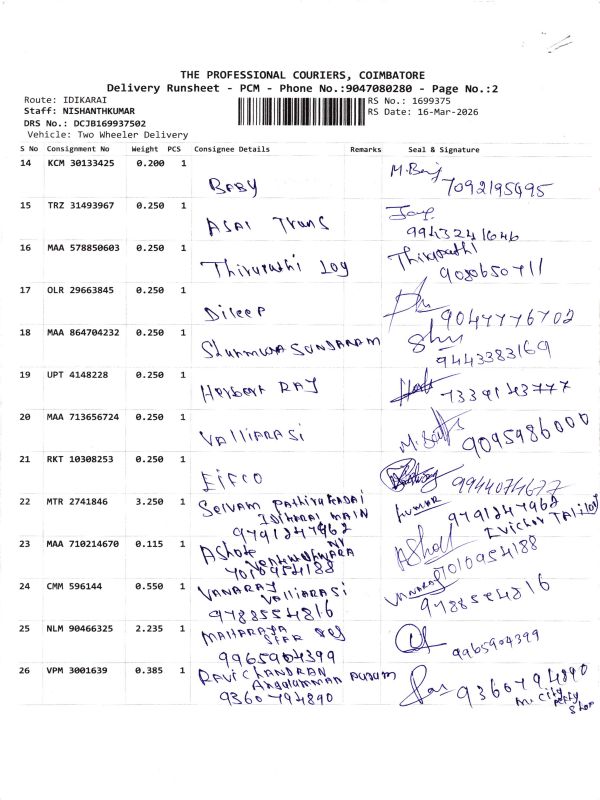 THE PROFESSIONAL COURIERS, COIMBATORE
Delivery Runsheet - PCM - Phone No.:9047080280 - Page No.:2
Route: IDIKARAI
Staff: NISHANTHKUMAR
DRS No.: DCJB169937502
Vehicle: Two Wheeler Delivery
RS No.: 1699375
RS Date: 16-Mar-2026
S No Consignment No Weight PCS Consignee Details Remarks Seal & Signature
14 KCM 30133425 0.200 1
BABY 7092195495
15 TRZ 31493967 0.250 1
ASAI Trans 9943241646
16 MAA 578850603 0.250 1 Thirupathi
Thirupathi Log 9080650711
17 OLR 29663845 0.250 1
Dileep 9047776702
18 MAA 864704232 0.250 1
Shunmuga SUNDARAM 9443383169
19 UPT 4148228 0.250 1
Herbert RAJ 7339143777
20 MAA 713656724 0.250 1
VALLIARASI 9095986000
21 RKT 10308253 0.250 1
EIFCO 9944074677
22 MTR 2741846 3.250 1 Selvam Pathirakadai Kumar 9791247962
IDIKARAI MAIN
9791247962
23 MAA 710214670 0.115 1 Ashok Ashok
7010954188 7010954188
24 CMM 596144 0.550 1 VANARAJ VANARAJ
VALLIARASI
9788554816 9788554816
25 NLM 90466325 2.235 1 MAHARAJA
STAR
9965904399 9965904399
26 VPM 3001639 0.385 1 RAVICHANDRAN
Angalamman
9360794890 9360794890
City
Shop